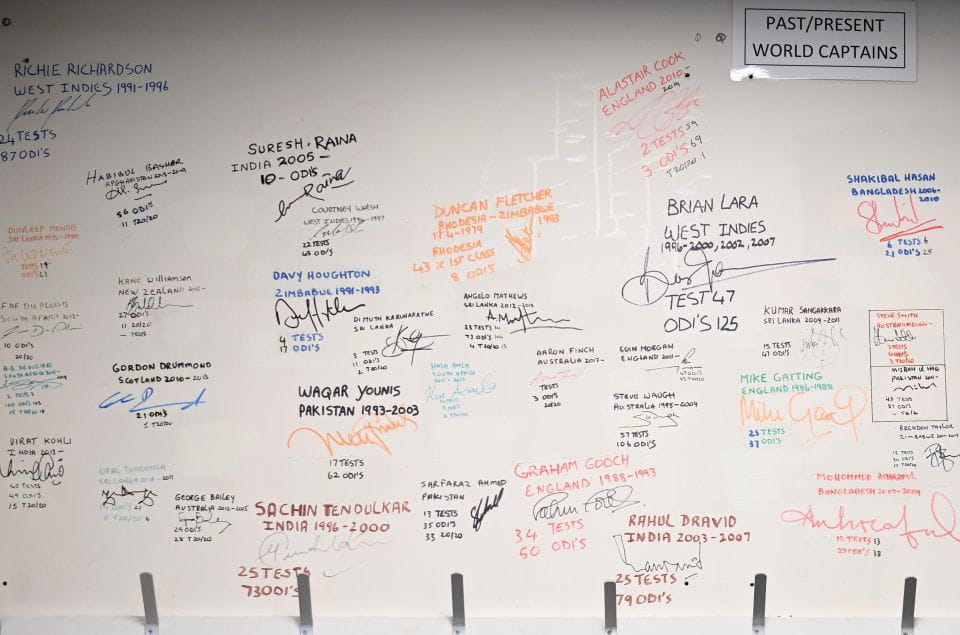 PAST/PRESENT
WORLD CAPTAINS
RICHIE RICHARDSON
WEST INDIES 1991-1996
24 TESTS
87 ODI'S
HABIBUL BASHAR
56 ODI'S
11 T20/20
SURESH. RAINA
INDIA 2005 -
10 - ODI'S
Raina
COURTNEY WALSH
WEST INDIES 1996-1997
22 TESTS
43 ODI'S
DUNCAN FLETCHER
RHODESIA - ZIMBABWE
1983
RHODESIA
43 X 1ST CLASS
8 ODI'S
ALASTAIR COOK
ENGLAND 2010-
2 TESTS 59
3 ODI'S 69
T20/20 1
BRIAN LARA
WEST INDIES
1996-2000, 2002, 2007
TEST 47
ODI'S 125
SHAKIBAL HASAN
BANGLADESH 2006-
2010
6 TESTS 6
21 ODI'S 25
DULEEP MENDIS
SRI LANKA
TESTS 19
KANE WILLIAMSON
NEW ZEALAND 2012-
ODI'S
11 20/20
- TESTS
DAVY HOUGHTON
ZIMBABWE 1991-1993
4 TESTS
17 ODI'S
DIMUTH KARUNARATHE
SRI LANKA
3 TEST
ODI'S
20/20
ANGELO MATHEWS
SRI LANKA 2012-
23 TESTS
73 ODI'S
4 T20/20
KUMAR SANGAKKARA
SRI LANKA 2009-2011
15 TESTS
47 ODI'S
STEVE SMITH
AUSTRALIA
TESTS
ODI'S
T20/20
FAF DU PLESSIS
SOUTH AFRICA 2013-
10 ODI'S
20/20
GORDON DRUMMOND
SCOTLAND 2010- 2013
21 ODI'S
5 T20/20
WAQAR YOUNIS
PAKISTAN 1993-2003
17 TESTS
62 ODI'S
HASH AMLA
SOUTH AFRICA
AARON FINCH
AUSTRALIA 2017-
TESTS
3 ODI'S
20/20
EOIN MORGAN
ENGLAND 2011-
STEVE WAUGH
AUSTRALIA 1985-2004
57 TESTS
106 ODI'S
MIKE GATTING
ENGLAND 1986-1988
23 TESTS
37 ODI'S
MISBAH UL HAQ
PAKISTAN 2011-
43 TESTS
87 ODI'S
A.B. DE VILLIERS
SOUTH AFRICA
BRENDAN TAYLOR
ZIMBABWE
VIRAT KOHLI
INDIA 2013-
40 TESTS
49 ODI'S
15 T20/20
UPAL THARANGA
SRI LANKA
5 T20/20
GEORGE BAILEY
AUSTRALIA 2012-2015
29 ODI'S
28 T20/20
SACHIN TENDULKAR
INDIA 1996-2000
25 TESTS
73 ODI'S
SARFARAZ AHMED
PAKISTAN
13 TESTS
35 ODI'S
33 20/20
GRAHAM GOOCH
ENGLAND 1988-1993
34 TESTS
50 ODI'S
RAHUL DRAVID
INDIA 2003-2007
25 TESTS
79 ODI'S
MOHOMMED ASHRAFUL
BANGLADESH 2007-2009
13 TESTS 13
ODI'S 38